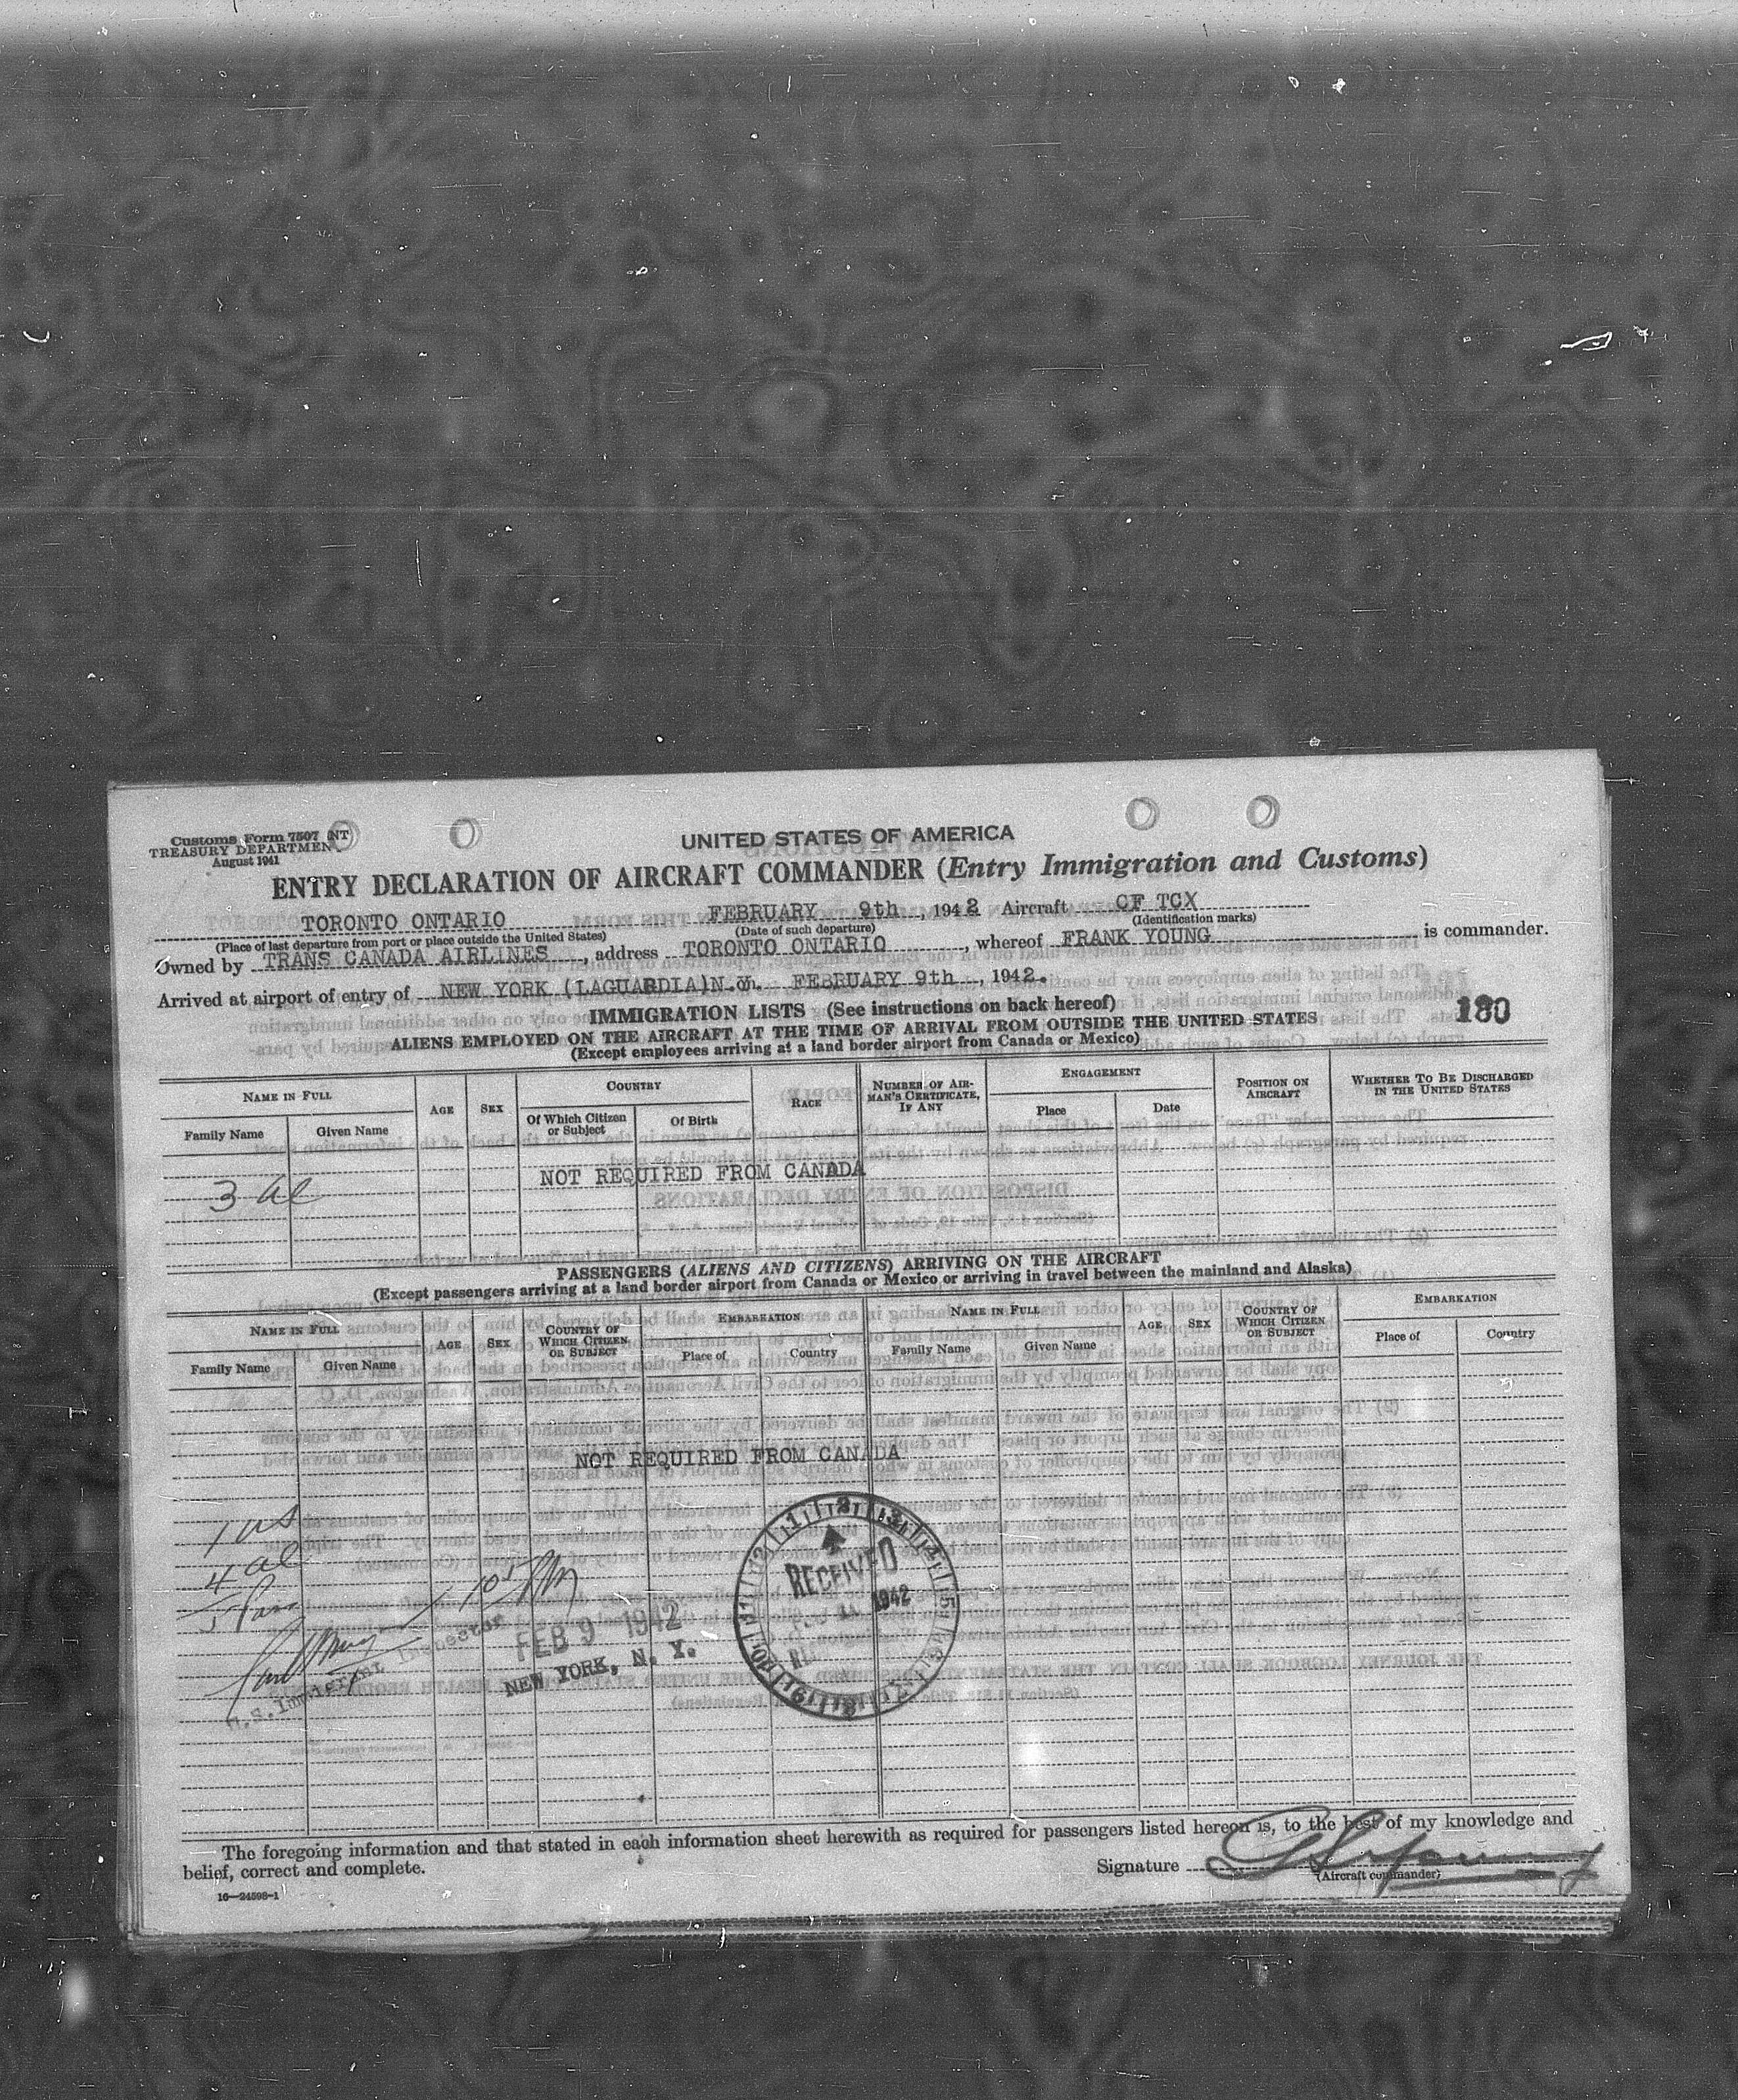 Customs Form 7507
TREASURY DEPARTMENT
August 1941
UNITED STATES OF AMERICA
ENTRY DECLARATION OF AIRCRAFT COMMANDER (Entry Immigration and Customs)
TORONTO ONTARIO FEBRUARY 9th, 1942 Aircraft CF TCX
(Place of last departure from port or place outside the United States) (Date of such departure) (Identification marks)
Owned by TRANS CANADA AIRLINES, address TORONTO ONTARIO, whereof FRANK YOUNG is commander.
Arrived at airport of entry of NEW YORK (LAGUARDIA) N.Y. FEBRUARY 9th, 1942.
180
IMMIGRATION LISTS (See instructions on back hereof)
ALIENS EMPLOYED ON THE AIRCRAFT AT THE TIME OF ARRIVAL FROM OUTSIDE THE UNITED STATES
(Except employees arriving at a land border airport from Canada or Mexico)
NAME IN FULL AGE SEX COUNTRY RACE NUMBER OF AIRMAN'S CERTIFICATE, IF ANY ENGAGEMENT POSITION ON AIRCRAFT WHETHER TO BE DISCHARGED IN THE UNITED STATES
Family Name Given Name Of Which Citizen or Subject Of Birth Place Date
NOT REQUIRED FROM CANADA
3 al
PASSENGERS (ALIENS AND CITIZENS) ARRIVING ON THE AIRCRAFT
(Except passengers arriving at a land border airport from Canada or Mexico or arriving in travel between the mainland and Alaska)
NAME IN FULL AGE SEX COUNTRY OF WHICH CITIZEN OR SUBJECT EMBARKATION NAME IN FULL AGE SEX COUNTRY OF WHICH CITIZEN OR SUBJECT EMBARKATION
Family Name Given Name Place of Country Family Name Given Name Place of Country
NOT REQUIRED FROM CANADA
1 us
4 al
5 Pass
U.S. Immigrant Inspector
FEB 9 1942
NEW YORK, N. Y.
RECEIVED
1942
The foregoing information and that stated in each information sheet herewith as required for passengers listed hereon is, to the best of my knowledge and
belief, correct and complete.
Signature
(Aircraft commander)
16—24598-1